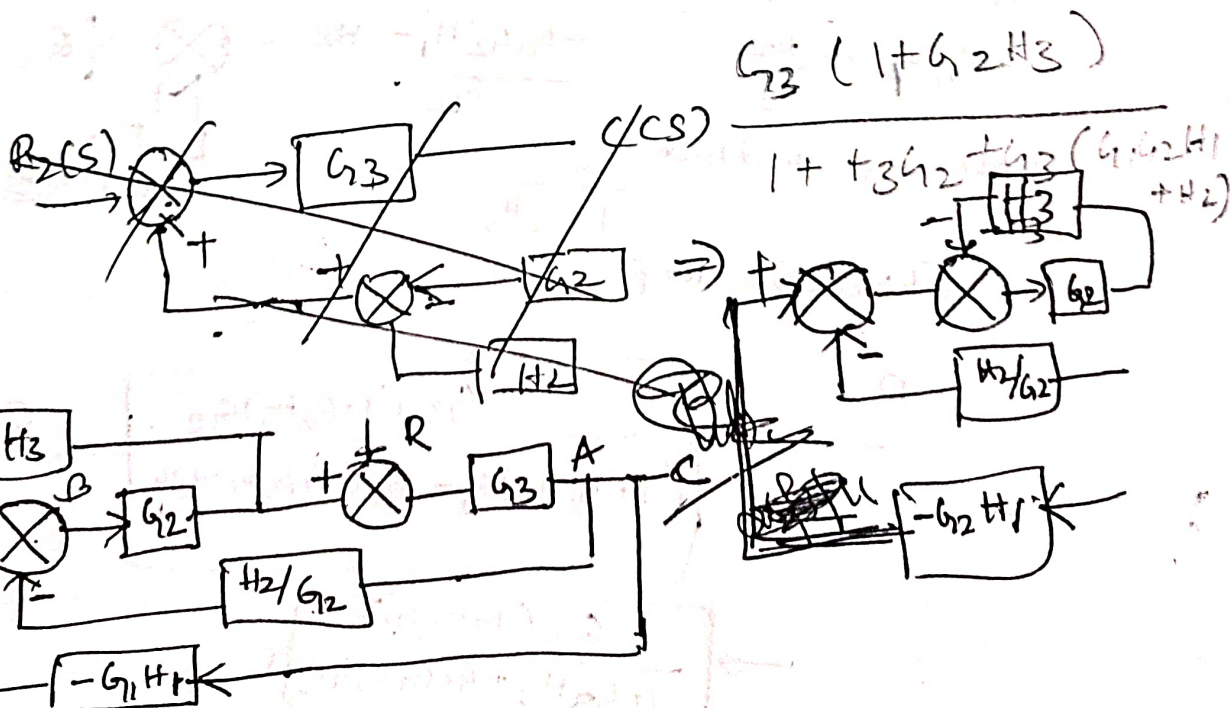 G3 (1+G2H3)
1 + +3G2 +G3(G1G2H1
+H2)
R2(S)
G3
C(CS)
+
+
G2
H2
⇒
+
-
H3
G2
-
H2/G2
-G2H1
H3
B
G2
+
R
G3
A
C
-
H2/G2
-G1H1